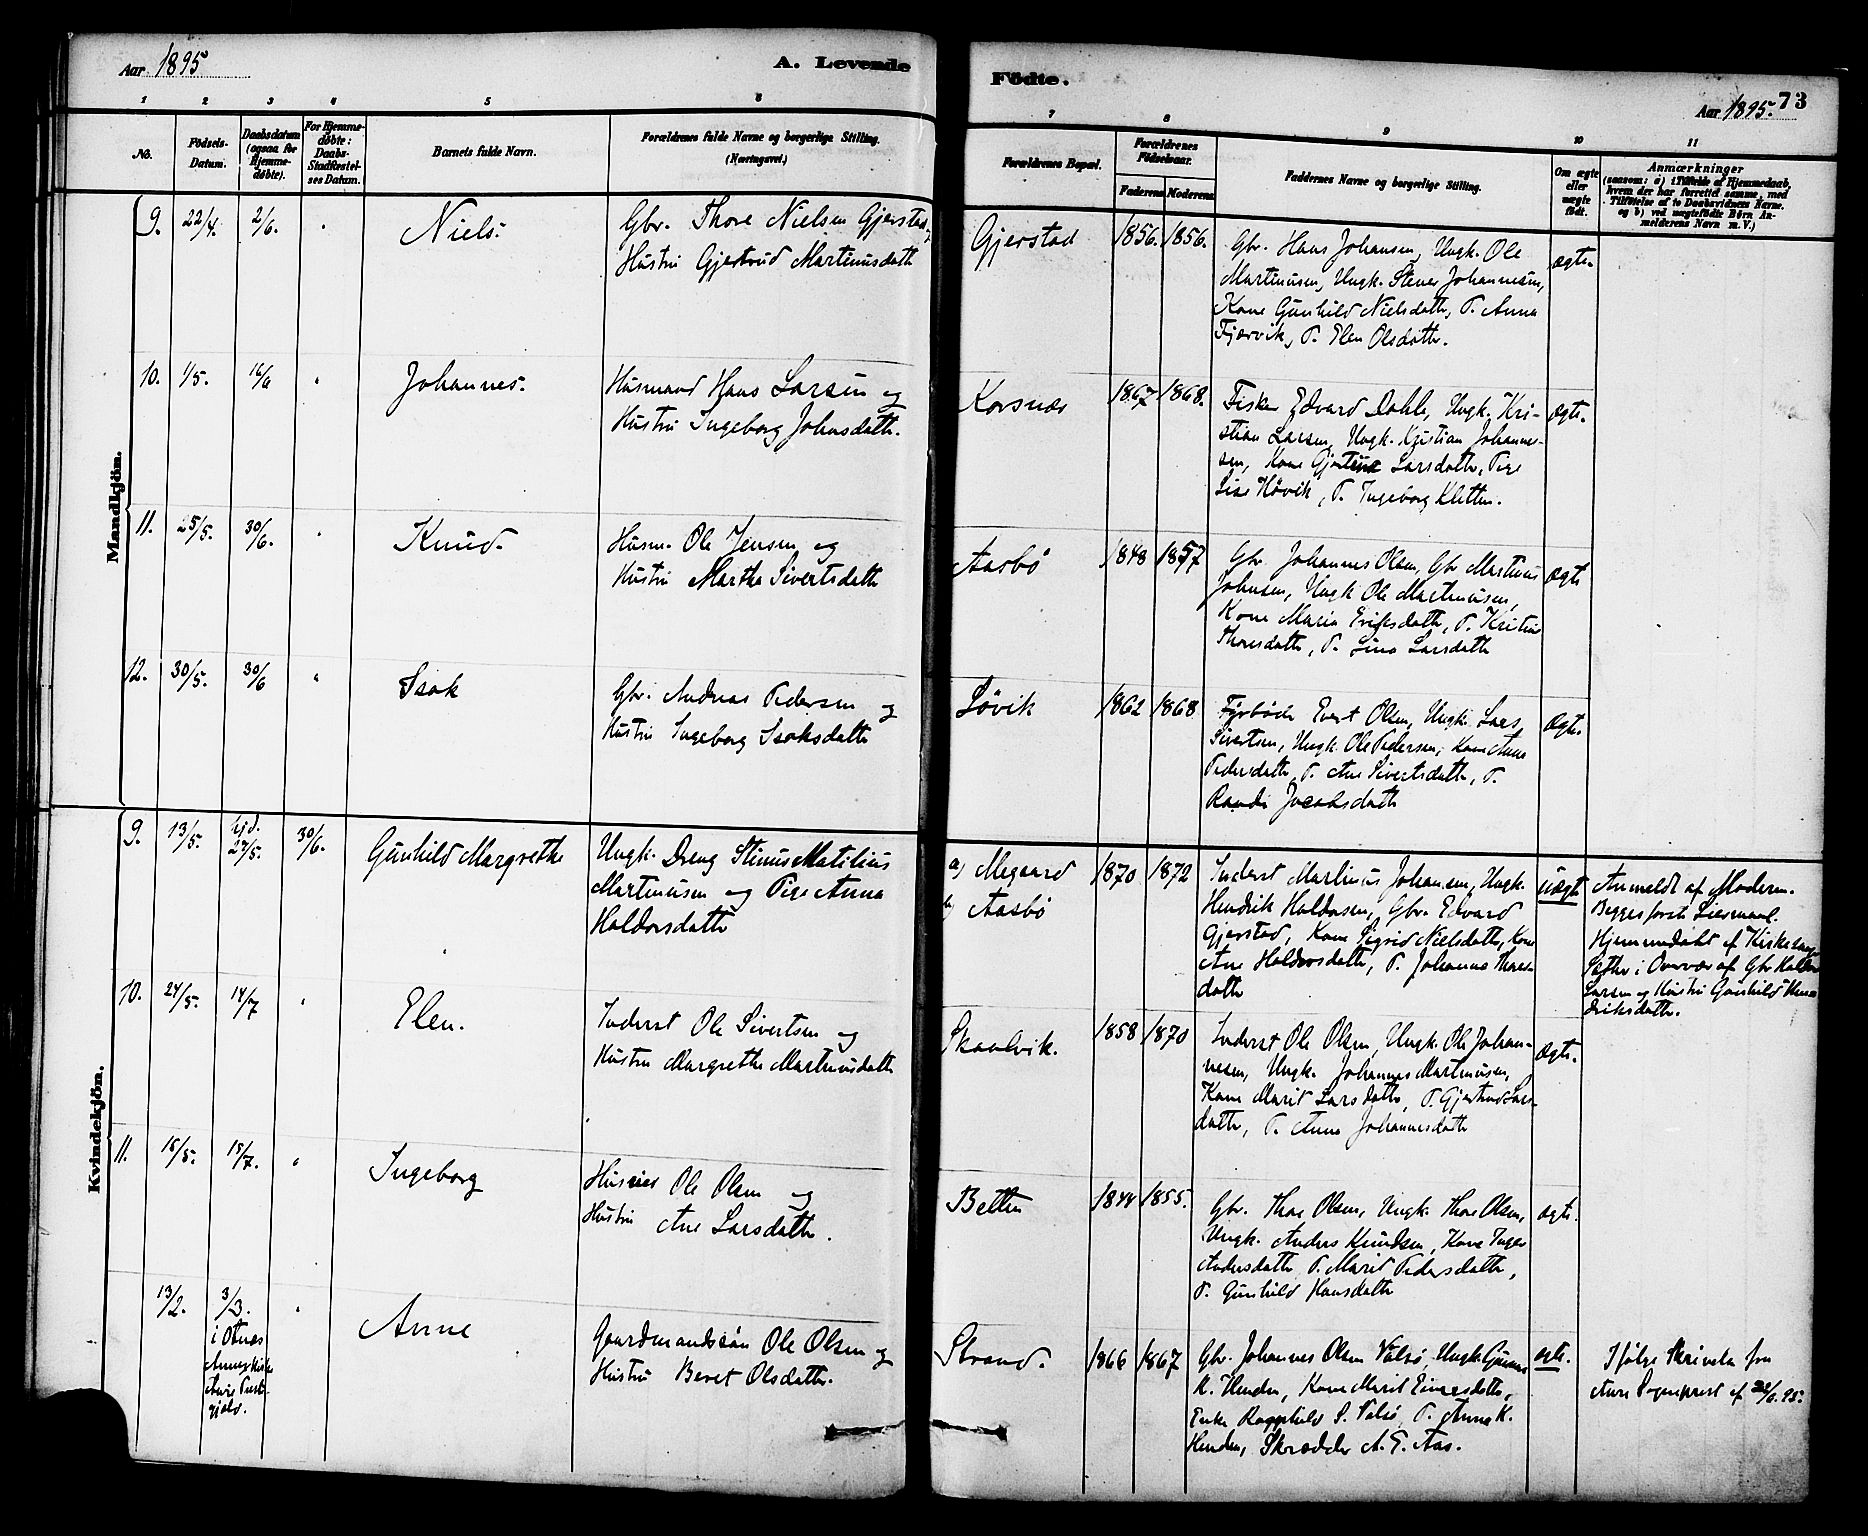 Aar 1895
A. Levende
1 2 3 4 5 6
No.
Födsels-
Datum.
Daabsdatum
(ogsaa for
Hjemme-
døbte).
For Hjemme-
døbte:
Daabs-
Stadfæstel-
ses Datum.
Barnets fulde Navn.
Forældrenes fulde Navne og borgerlige Stilling.
(Næringsvei.)
Mandkjön.
9. 22/4. 2/6. " Niels.
Gbr. Thore Nielsen Gjerstad og
Hustru Gjertrud Martinusdatter
10. 1/5. 16/6 " Johannes.
Husmand Hans Larsen og
Hustru Ingeborg Johnsdatter.
11. 25/5. 30/6. " Knud.
Husm. Ole Jensen og
Hustru Marthe Sivertsdatter
12. 30/5. 30/6 " Isak
Gbr. Andreas Pedersen og
Hustru Ingeborg Isaksdatter
Kvindekjön.
9. 13/5. hjd. 27/5. 30/6. Gunhild Margrethe
Ungk. Dreng Stinus Matilius
Martinusen og Pige Anna
Haldorsdatter
10. 24/5. 14/7 " Elen.
Inderst Ole Sivertsen og
Hustru Margrethe Martinusdatter
11. 16/5. 15/7. " Ingeborg
Ole Olsen og
Hustru Ane Larsdatter.
13/2. 3/3.
i Otnes
Annexkirke
Aure Præste-
gjeld.
" Anne
Gaardmandssön Ole Olsen og
Hustru Beret Olsdatter.
Födte.
Aar 1895. 73
7 8 9 10 11
Forældrenes Bopæl.
Forældrenes
Födselsaar.
Faderens Moderens
Faddernes Navne og borgerlige Stilling.
Om ægte
eller
uægte
födt.
Anmærkninger
(saasom: a) i Tilfælde af Hjemmedaab,
hvem der har forrettet samme, med
Tilföielse af to Daabsvidners Navne.
og b) ved uægtefödte Börn An-
melderens Navn m. V.)
Gjerstad 1856. 1856.
Gbr. Hans Johansen, Ungk. Ole
Martinusen, Ungk. Stener Johannesen,
Kone Gunhild Nielsdatter, P. Anna
Fjærvik, P. Elen Olsdatter.
ægte.
Korsnæs 1867 1868.
Fisker Edvard Dahle, Ungk. Kri-
stian Larsen, Ungk. Kristian Johannes-
sen, Kone Gjertine Larsdatter, Pige
Lise Høvik, P. Ingeborg Kletten.
ægte.
Aasbö 1848 1857
Gbr Johannes Olsen, Gbr Martinus
Johnsen, Ungk Ole Martinusen,
Kone Maria Eriksdatter, P. Kristine
Thoresdatter, P. Lina Larsdatter
ægte
Løvik 1862 1868
Fyrbøder Evert Olsen, Ungk. Lars
Sivertsen, Ungk. Ole Pedersen, Kone Anne
Pedersdatter, P. Ane Sivertsdatter, P.
Randi Jacobsdatter
ægte.
a) Megaard
b) Aasbö
1870 1872
Inderst Martinus Johansen, Ungk.
Hendrik Haldorsen, Gbr. Edvard
Gjerstad, Kone Sigrid Nielsdatter, Kone
Ane Haldorsdatter, P. Johanna Thores-
datter
uægte
Anmeldt af Moderen.
Begges første Leiermaal.
Hjemmedøbt af Kirkesanger
Sæther i Overvær af Gbr Haldor
Larsen og Hustru Gunhild Hen-
driksdatter.
Skaalvik. 1858 1870
Inderst Ole Olsen, Ungk. Ole Johan-
nesen, Ungk. Johannes Martinusen,
Kone Marit Larsdatter, P. Gjertrud Lars-
datter, P. Anna Johannesdatter
ægte.
Betten 1844 1855.
Gbr. Thore Olsen, Ungk. Thore Olsen,
Ungk. Anders Knudsen, Kone Inger
Andersdatter P. Marit Pedersdatter,
P. Gunhild Hansdatter
ægte.
Strand. 1866 1867
Gbr. Johannes Olsen Valsö, Ungk. Gunnar
K. Henden, Kone Marit Einersdatter,
Enke Ragnhild S. Valsö, P. Anne K.
Henden, Skrædder A. E. Aas.
ægte.
Ifølge Skrivelse fra
Aure Sogneprest af 22/6. 95.